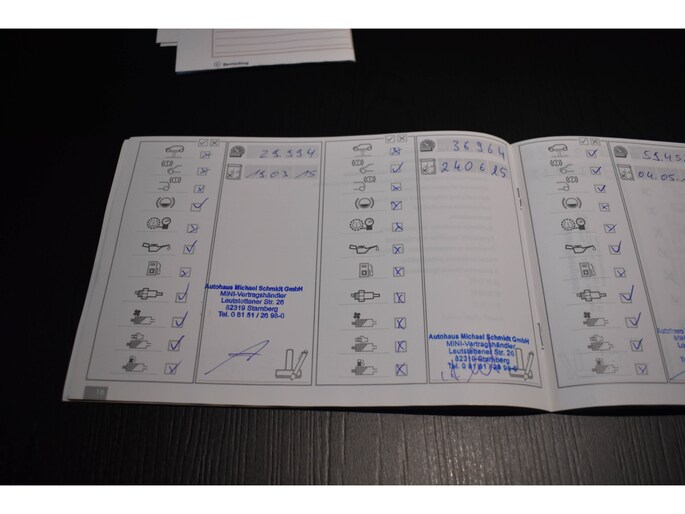 29.994
19.03.15
Autohaus Michael Schmidt GmbH
MINI-Vertragshändler
Leutstettener Str. 26
82319 Starnberg
Tel. 0 81 51 / 26 98-0
36964
240615
Autohaus Michael Schmidt GmbH
MINI-Vertragshändler
Leutstettener Str. 26
82319 Starnberg
Tel. 0 81 51 / 26 98-0
04.05.1